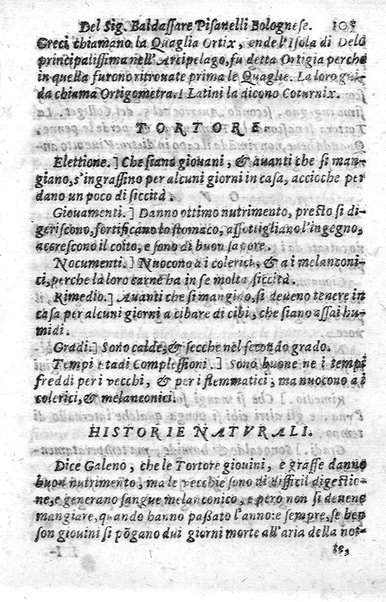 Del Sig. Baldassare Pisanelli Bolognese. 105
Greci chiamano la Quaglia Ortix, onde l'Isola di Delo
principalissima nell'Arcipelago, fu detta Ortigia perche
in quella furono ritrouate prima le Quaglie. La loro gui-
da chiama Ortigometra. I Latini la dicono Coturnix.
TORTORE.
Elettione.] Che siano giouani, & auanti che si man-
giano, s'ingrassino per alcuni giorni in casa, accioche per
dano un poco di siccità.
Giouamenti.] Danno ottimo nutrimento, presto si di-
geriscono, fortificano lo stomaco, assottigliano l'ingegno,
accrescono il coito, e sono di buon sapore.
Nocumenti.] Nuocono à i colerici, & à i melanconi-
ci, perche la loro carne ha in se molta siccità.
Rimedio.] Auanti che si mangino, si deueno tenere in
casa per alcuni giorni a cibare di cibi, che siano assai hu-
midi.
Gradi.] Sono calde, & secche nel secondo grado.
Tempi età di Complessioni.] Sono buone ne i tempi
freddi per i vecchi, & per i flemmatici; ma nuocono à i
colerici, & melanconici.
HISTORIE NATVRALI.
Dice Galeno, che le Tortore giouini, e grasse danno
buon nutrimento, ma le vecchie sono di difficil digestio-
ne, e generano sangue melanconico, e però non si deueno
mangiare, quando hanno passato l'anno: e sempre, se ben
son giouini si põgano dui giorni morte all'aria della not-